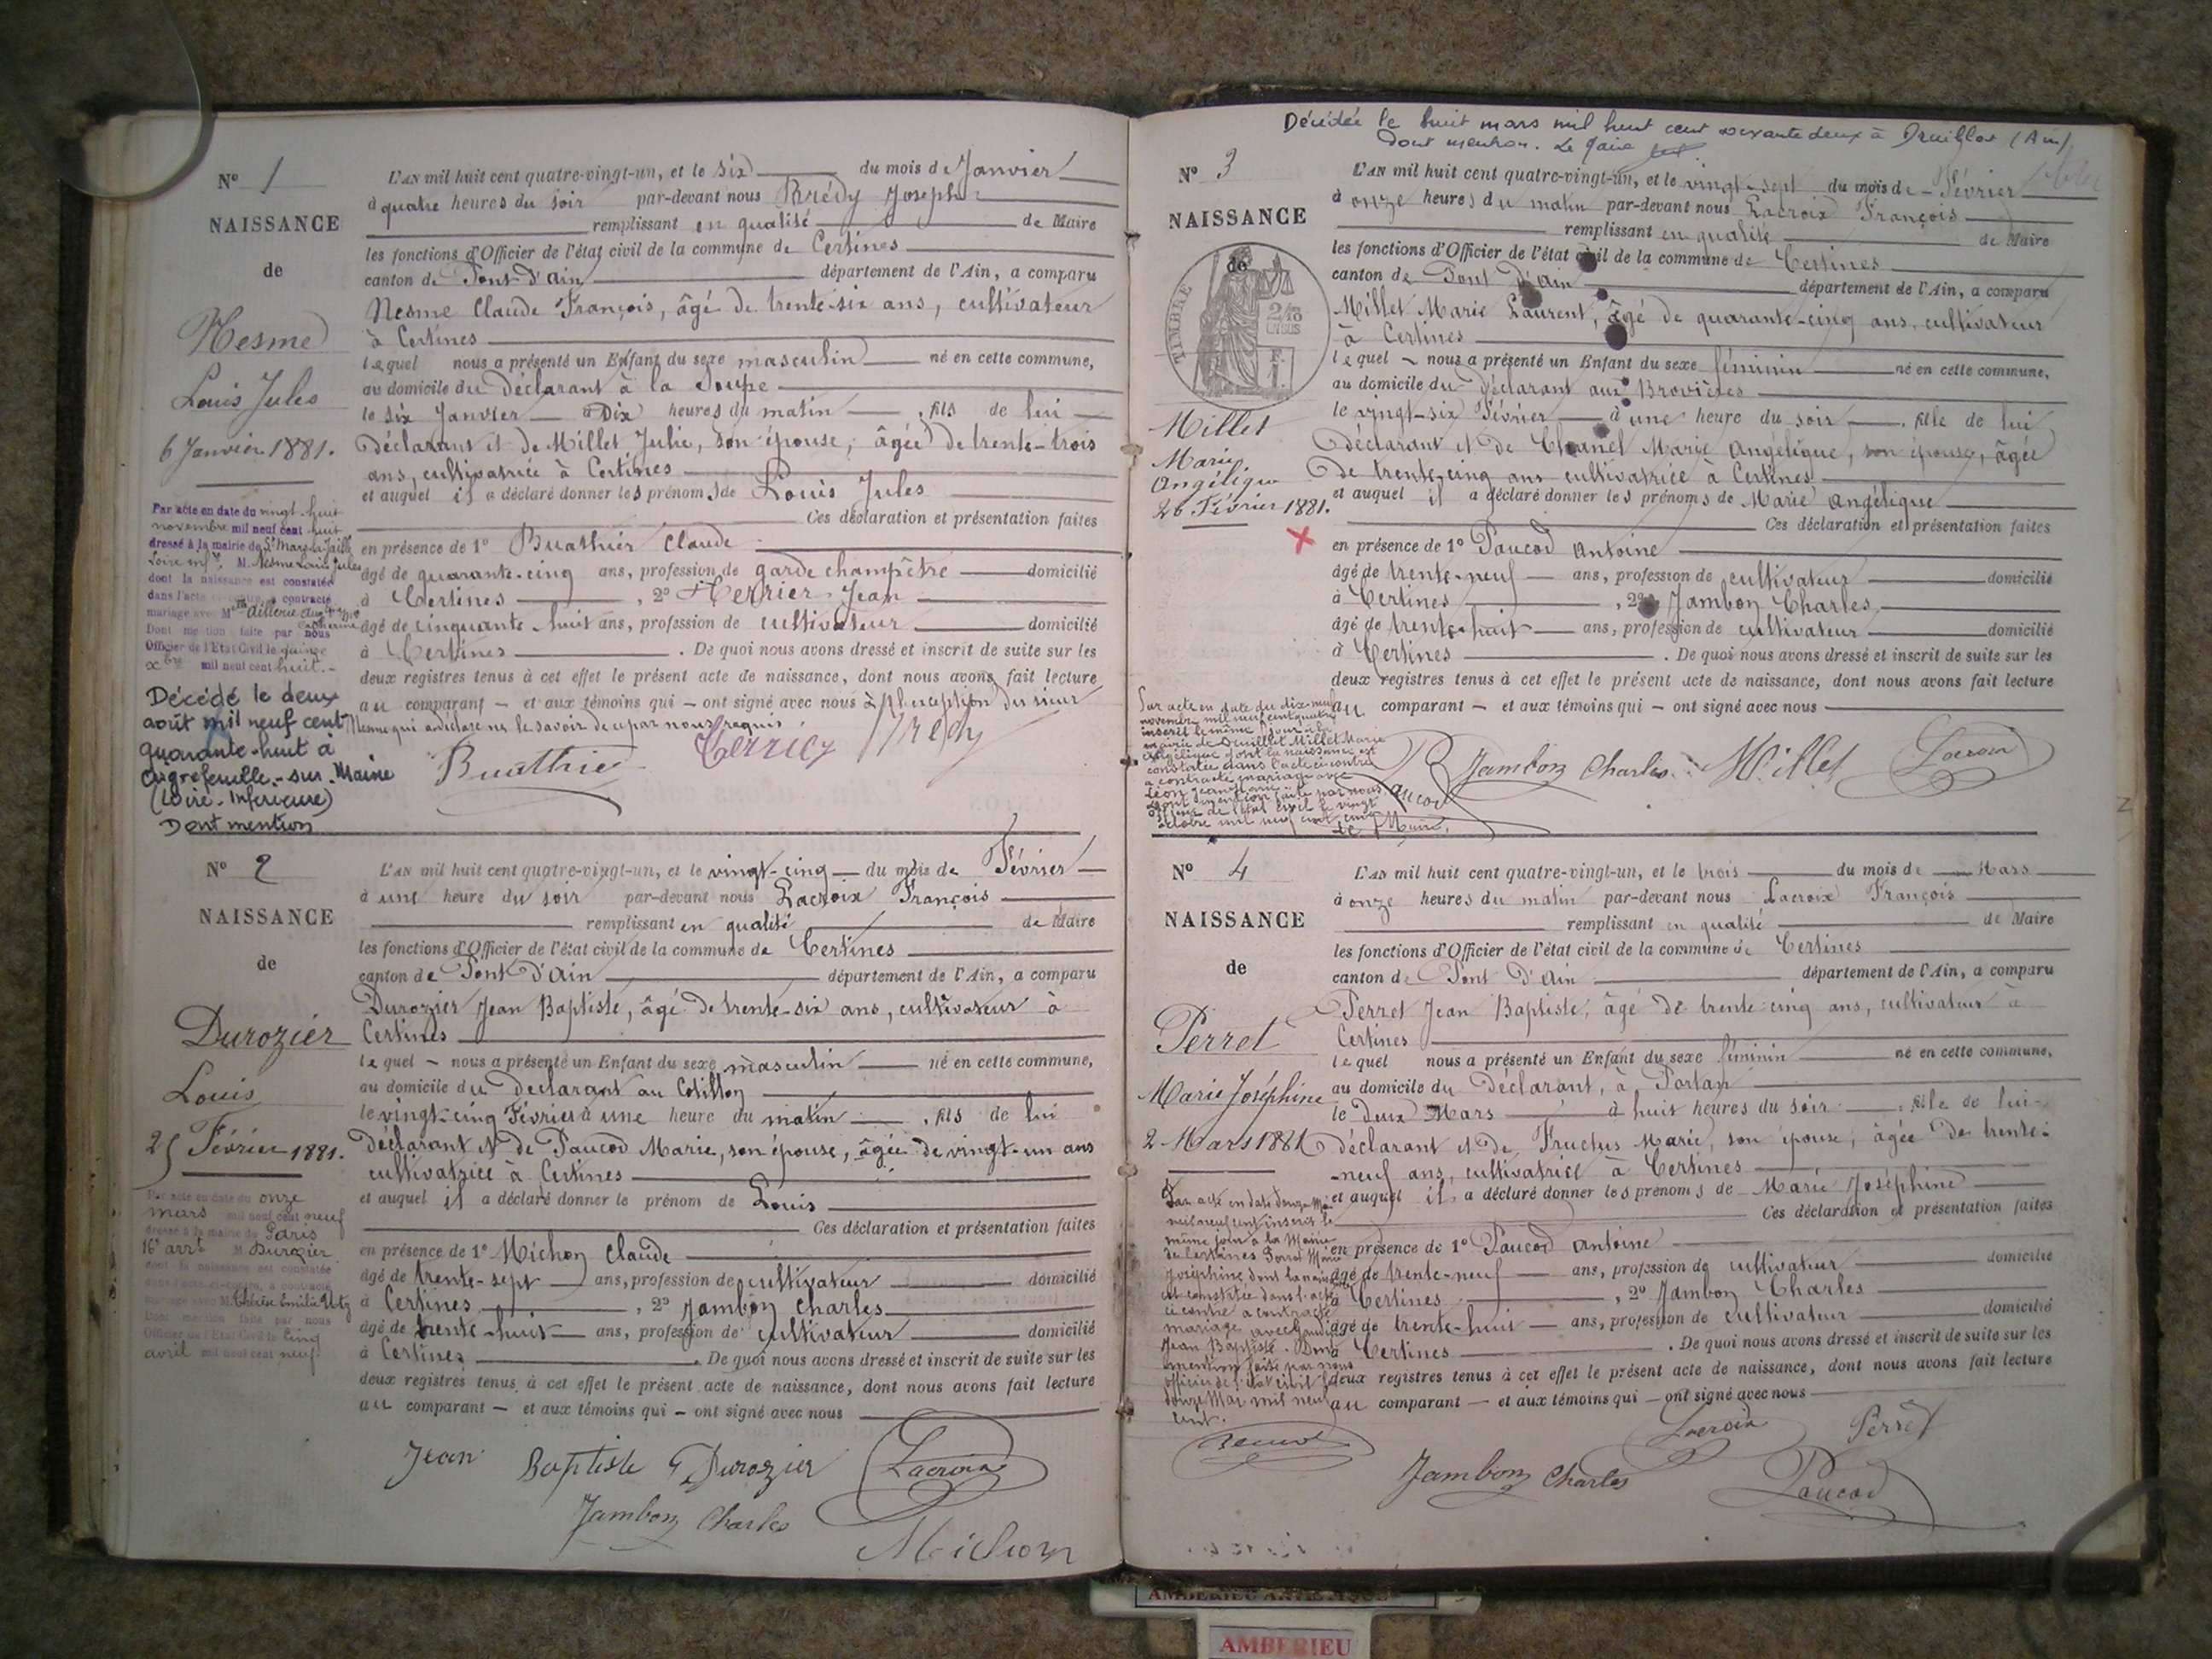 N° 1
NAISSANCE
de
Nesme
Louis Jules
6 Janvier 1881.
Par acte en date du vingt-huit
novembre mil neuf cent huit
dressé à la mairie de St Mars la Jaille
Loire infre M. Nesme Louis Jules
dont la naissance est constatée
dans l'acte ci-contre, a contracté
mariage avec
Dont mention faite par nous
Officier de l'Etat Civil le quinze
xbre mil neuf cent huit.
Décédé le deux
août mil neuf cent
quarante-huit à
Aigrefeuille-sur-Maine
(Loire-Inférieure)
Dont mention
L'AN mil huit cent quatre-vingt-un, et le six du mois de Janvier
à quatre heures du soir par-devant nous Brédy Joseph
remplissant en qualité de Maire
les fonctions d'Officier de l'état civil de la commune de Certines
canton de Pont-D'ain département de l'Ain, a comparu
Nesme Claude François, âgé de trente-six ans, cultivateur
à Certines
lequel nous a présenté un Enfant du sexe masculin né en cette commune,
au domicile du Déclarant à la Soupe
le six Janvier à Dix heures du matin , fils de lui
Déclarant et de Millet Julie, son épouse, âgée de trente-trois
ans, cultivatrice à Certines
et auquel il a déclaré donner les prénoms de Louis Jules
Ces déclaration et présentation faites
en présence de 1° Buathier Claude
âgé de quarante-cinq ans, profession de garde champêtre domicilié
à Certines , 2° Jean
âgé de cinquante-huit ans, profession de cultivateur domicilié
à Certines . De quoi nous avons dressé et inscrit de suite sur les
deux registres tenus à cet effet le présent acte de naissance, dont nous avons fait lecture
au comparant — et aux témoins qui — ont signé avec nous à l'exception du sieur
Nesme qui a déclaré ne le savoir de ce par nous requis.
N° 2
NAISSANCE
de
Durozier
Louis
25 Février 1881.
Par acte en date du onze
mars mil neuf cent neuf
dressé à la mairie de Paris
16e arrt M. Durozier
dont la naissance est constatée
dans l'acte ci-contre, a contracté
mariage avec M. Thérèse Emilie
Dont mention faite par nous
Officier de l'Etat Civil le cinq
avril mil neuf cent neuf.
L'AN mil huit cent quatre-vingt-un, et le vingt-cinq du mois de Février
à une heure du soir par-devant nous Lacroix François
remplissant en qualité de Maire
les fonctions d'Officier de l'état civil de la commune de Certines
canton de Pont-D'ain département de l'Ain, a comparu
Durozier Jean Baptiste, âgé de trente-six ans, cultivateur à
Certines
lequel — nous a présenté un Enfant du sexe masculin né en cette commune,
au domicile du Déclarant au Cotillon
le vingt-cinq Février à une heure du matin , fils de lui
Déclarant et de Paucod Marie, son épouse, âgée de vingt-un ans
cultivatrice à Certines
et auquel il a déclaré donner le prénom de Louis
Ces déclaration et présentation faites
en présence de 1° Michon Claude
âgé de trente-sept ans, profession de cultivateur domicilié
à Certines , 2° Jambon Charles
âgé de trente-huit ans, profession de cultivateur domicilié
à Certines . De quoi nous avons dressé et inscrit de suite sur les
deux registres tenus à cet effet le présent acte de naissance, dont nous avons fait lecture
au comparant — et aux témoins qui — ont signé avec nous
Jean Baptiste Durozier Lacroix
Jambon Charles
Michon
Décédée le huit mars mil huit cent soixante deux à Druillat (Ain)
Dont mention. Le Maire
N° 3
NAISSANCE
de
TIMBRE
Millet
Marie
Angélique
26 Février 1881.
L'AN mil huit cent quatre-vingt-un, et le vingt-sept du mois de Février
à onze heures du matin par-devant nous Lacroix François
remplissant en qualité de Maire
les fonctions d'Officier de l'état civil de la commune de Certines
canton de Pont D'ain département de l'Ain, a comparu
Millet Marie Laurent, âgé de quarante-cinq ans, cultivateur
à Certines
lequel — nous a présenté un Enfant du sexe féminin né en cette commune,
au domicile du Déclarant aux Brovières
le vingt-six Février à une heure du soir , fille de lui
déclarant et de Chanel Marie Angélique, son épouse, âgée
de trente-cinq ans cultivatrice à Certines
et auquel il a déclaré donner les prénoms de Marie Angélique
Ces déclaration et présentation faites
en présence de 1° Paucod Antoine
âgé de trente-neuf ans, profession de cultivateur domicilié
à Certines , 2° Jambon Charles
âgé de trente-huit ans, profession de cultivateur domicilié
à Certines . De quoi nous avons dressé et inscrit de suite sur les
deux registres tenus à cet effet le présent acte de naissance, dont nous avons fait lecture
au comparant — et aux témoins qui — ont signé avec nous
novembre mil neuf cent quatre
inscrit le même jour à la
mairie de Druillat Millet Marie
Angélique dont la naissance est
constatée dans l'acte ci contre
a contracté mariage avec
dont mention faite par nous
officier de l'état civil le vingt
octobre mil neuf cent cinq
Le Maire,
Paucod Jambon Charles Millet Lacroix
N° 4
NAISSANCE
de
Perret
Marie Joséphine
2 Mars 1881
Par acte en date douze Mai
mil neuf cent inscrit le
même jour à la Mairie
de Certines Perret Marie
Joséphine dont la naissance
est constatée dans l'acte
ci contre a contracté
mariage avec
Jean Baptiste. Dont
mention faite par nous
officier de l'état civil le
douze Mai mil neuf
cent.
L'AN mil huit cent quatre-vingt-un, et le trois du mois de Mars
à onze heures du matin par-devant nous Lacroix François
remplissant en qualité de Maire
les fonctions d'Officier de l'état civil de la commune de Certines
canton de Pont D'ain département de l'Ain, a comparu
Perret Jean Baptiste, âgé de trente-cinq ans, cultivateur à
Certines
lequel nous a présenté un Enfant du sexe féminin né en cette commune,
au domicile du Déclarant, à
le Deux Mars à huit heures du soir , fille de lui
déclarant et de Fructus Marie, son épouse, âgée de trente-
neuf ans, cultivatrice à Certines
et auquel il a déclaré donner les prénoms de Marie Joséphine
Ces déclaration et présentation faites
en présence de 1° Paucod Antoine
âgé de trente-neuf ans, profession de cultivateur domicilié
à Certines , 2° Jambon Charles
âgé de trente-huit ans, profession de cultivateur domicilié
à Certines . De quoi nous avons dressé et inscrit de suite sur les
deux registres tenus à cet effet le présent acte de naissance, dont nous avons fait lecture
au comparant — et aux témoins qui — ont signé avec nous
Lacroix Perret
Jambon Charles Paucod
AMBERIEU